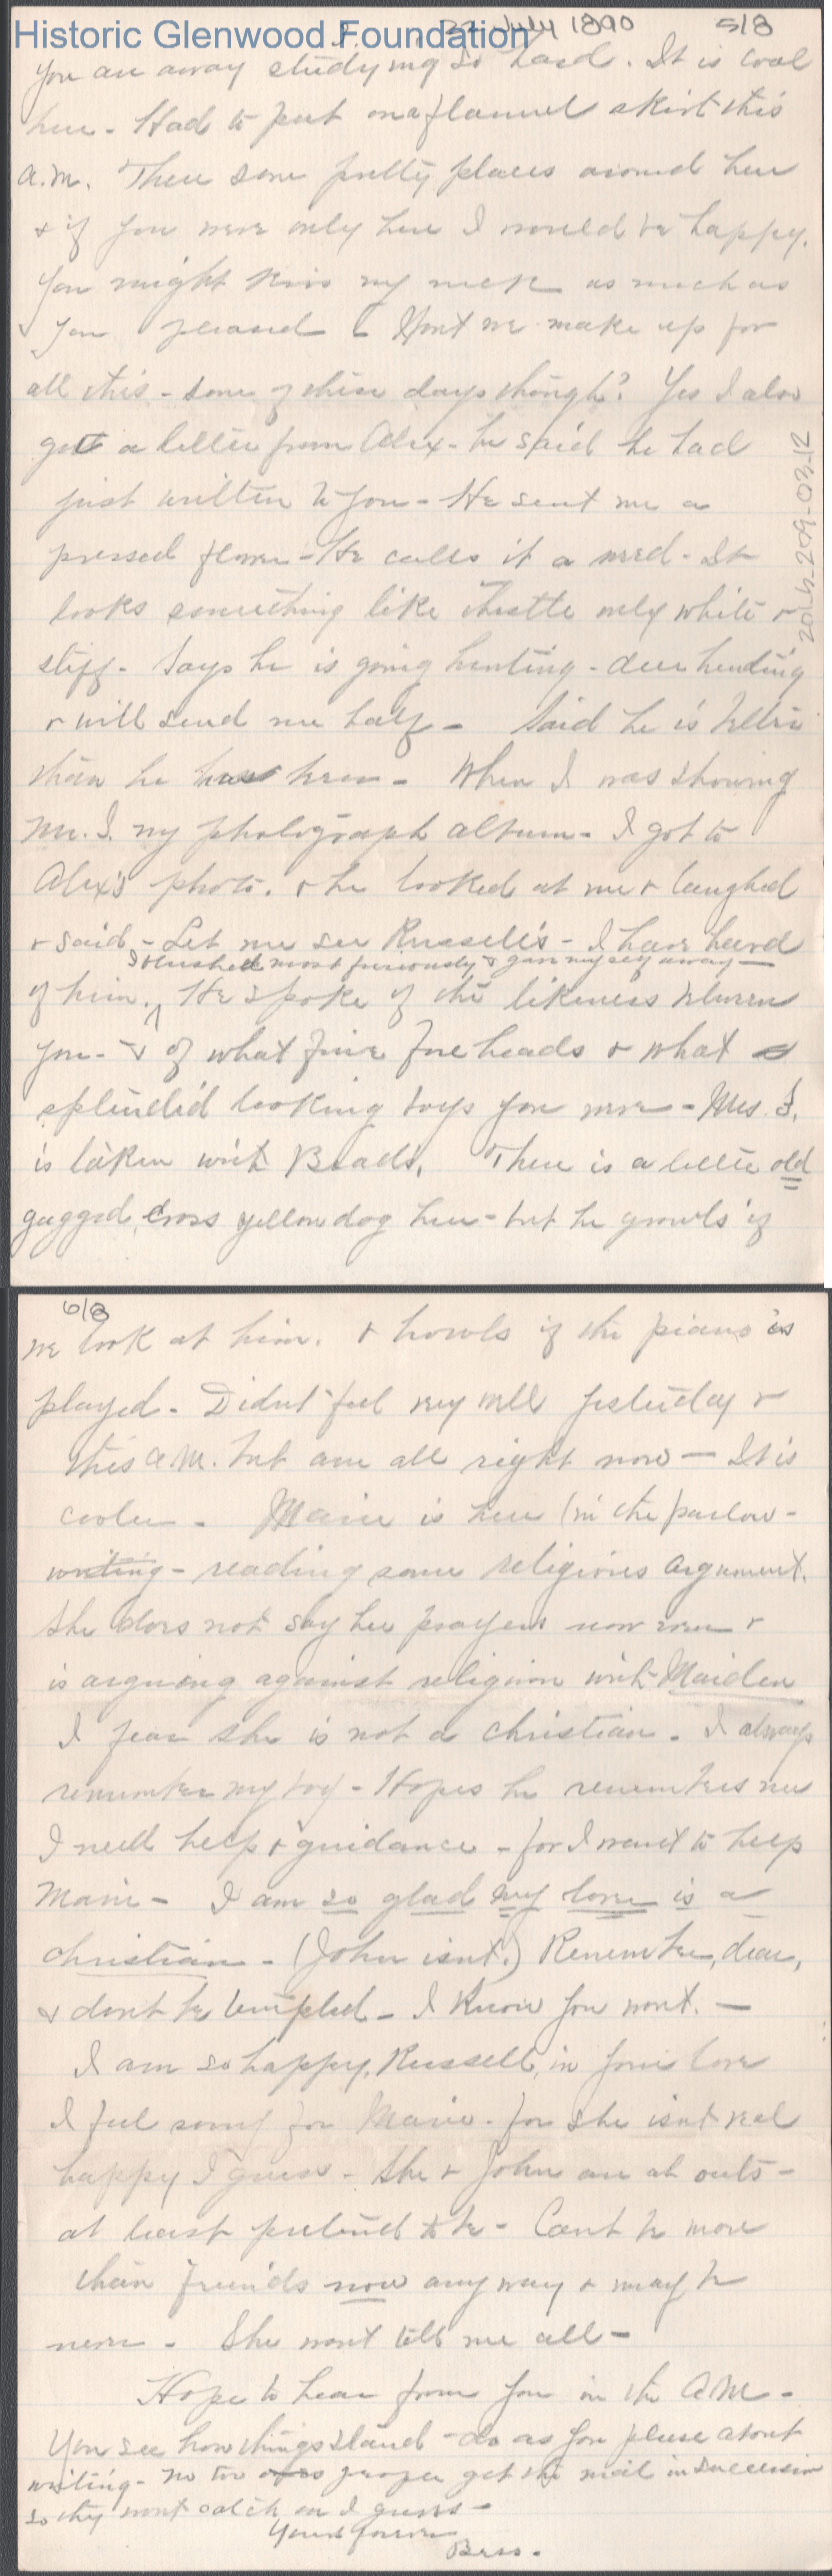 Historic Glenwood Foundation
22 July 1890 5/8
you are away studying so hard. It is cool
here - Had to put on a flannel skirt this
a.m. There some pretty places around here
& if you were only here I would be happy.
You might kiss my neck as much as
you pleased - Wont we make up for
all this - some of these days though? Yes I also
got a letter from Alex - he said he had
just written to you - He sent me a
pressed flower - He calls it a weed - It
looks something like thistle only white &
stiff - Says he is going hunting - deer hunting
& will send me half - Said he is better
than he has been - When I was showing
Mr. S. my photograph album - I got to
Alex's photo. & he looked at me & laughed
& said - Let me see Russell's - I have heard
I blushed most furiously & gave myself away -
of him. ^ He spoke of the likeness between
you - & of what fine foreheads & what
splendid looking boys you were - Mrs. S.
is taken with Brads. There is a little old
gagged, cross yellow dog here - but he growls if
2014-209-03-12
6/8
we look at him. & howls if the piano is
played - Didnt feel very well yesterday &
this a.m. but am all right now - It is
cooler - Marie is here (in the parlor -
writing - reading some religious argument.
She does not say her prayers now even &
is arguing against religion with Maiden
I fear she is not a christian - I always
remember my boy - Hopes he remembers me
I need help & guidance - for I want to help
Marie - I am so glad my love is a
christian - (John isnt.) Remember, dear,
& dont be tempted - I know you wont. -
I am so happy, Russell, in your love
I feel sorry for Marie - for she isnt real
happy I guess - She & John are at outs -
at least pretend to be - Cant be more
than friends now any way & may be
never - She wont tell me all -
Hope to hear from you in the AM -
You see how things stand - do as you please about
writing - No two get the mail in succession
so they wont catch on I guess -
Yours forever
Bess.